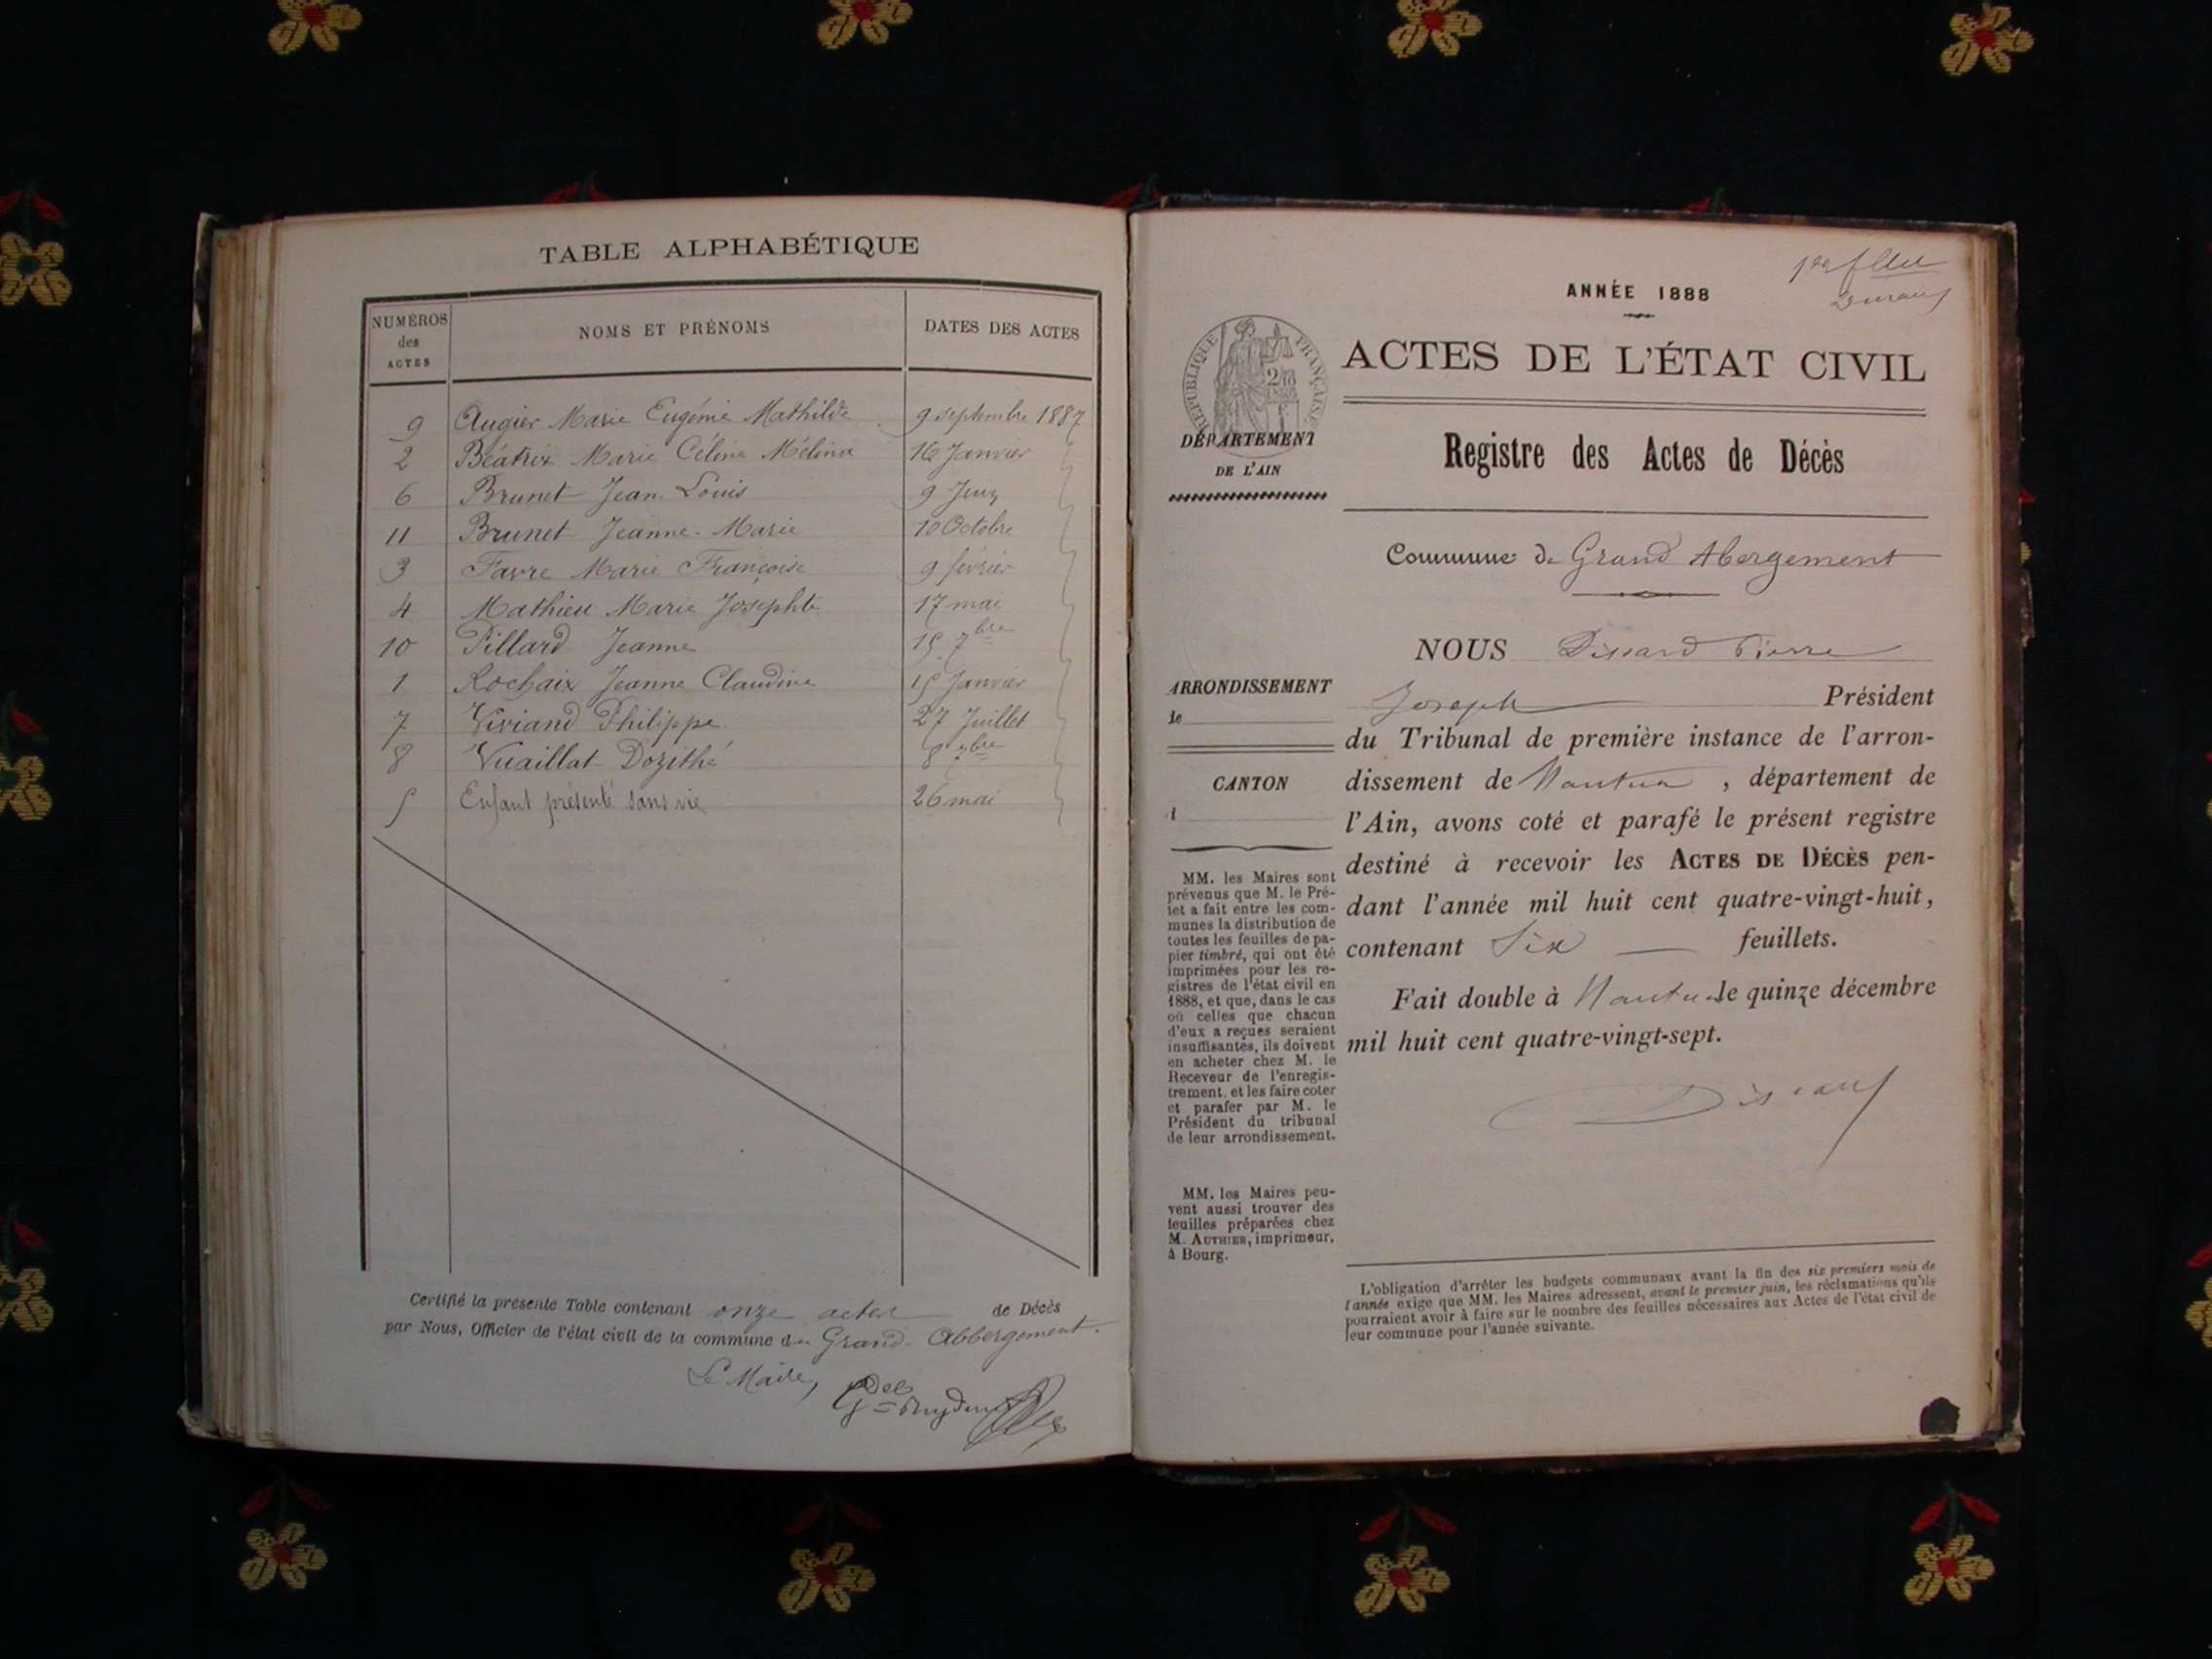 TABLE ALPHABÉTIQUE
NUMÉROS des ACTES NOMS ET PRÉNOMS DATES DES ACTES
9 Augier Marie Eugénie Mathilde 9 septembre 1887
2 Béatrix Marie Céline Mélina 16 Janvier
6 Brunet Jean Louis 9 Juin
11 Brunet Jeanne-Marie 10 Octobre
3 Favre Marie Françoise 9 février
4 Mathieu Marie Josephte 17 mai
10 Pillard Jeanne 15 7bre
1 Rochaix Jeanne Claudine 15 Janvier
7 Viviand Philippe 27 Juillet
8 Vuaillat Dozithé 8 7bre
5 Enfant présenté sans vie 26 mai
Certifié la présente Table contenant onze actes de Décès
par Nous, Officier de l'état civil de la commune du Grand-Abbergement.
Le Maire,
ANNÉE 1888
ACTES DE L'ÉTAT CIVIL
RÉPUBLIQUE FRANÇAISE
DÉPARTEMENT
DE L'AIN
Registre des Actes de Décès
Commune de Grand Abergement
ARRONDISSEMENT
de
CANTON
d
MM. les Maires sont
prévenus que M. le Pré-
fet a fait entre les com-
munes la distribution de
toutes les feuilles de pa-
pier timbré, qui ont été
imprimées pour les re-
gistres de l'état civil en
1888, et que, dans le cas
où celles que chacun
d'eux a reçues seraient
insuffisantes, ils doivent
en acheter chez M. le
Receveur de l'enregis-
trement, et les faire coter
et parafer par M. le
Président du tribunal
de leur arrondissement.
MM. les Maires peu-
vent aussi trouver des
feuilles préparées chez
M. AUTHIER, imprimeur,
à Bourg.
NOUS Dissard Pierre
Joseph Président
du Tribunal de première instance de l'arron-
dissement de Nantua, département de
l'Ain, avons coté et parafé le présent registre
destiné à recevoir les ACTES DE DÉCÈS pen-
dant l'année mil huit cent quatre-vingt-huit,
contenant Six feuillets.
Fait double à Nantua le quinze décembre
mil huit cent quatre-vingt-sept.
Dissard
L'obligation d'arrêter les budgets communaux avant la fin des six premiers mois de
l'année exige que MM. les Maires adressent, avant le premier juin, les réclamations qu'ils
pourraient avoir à faire sur le nombre des feuilles nécessaires aux Actes de l'état civil de
leur commune pour l'année suivante.